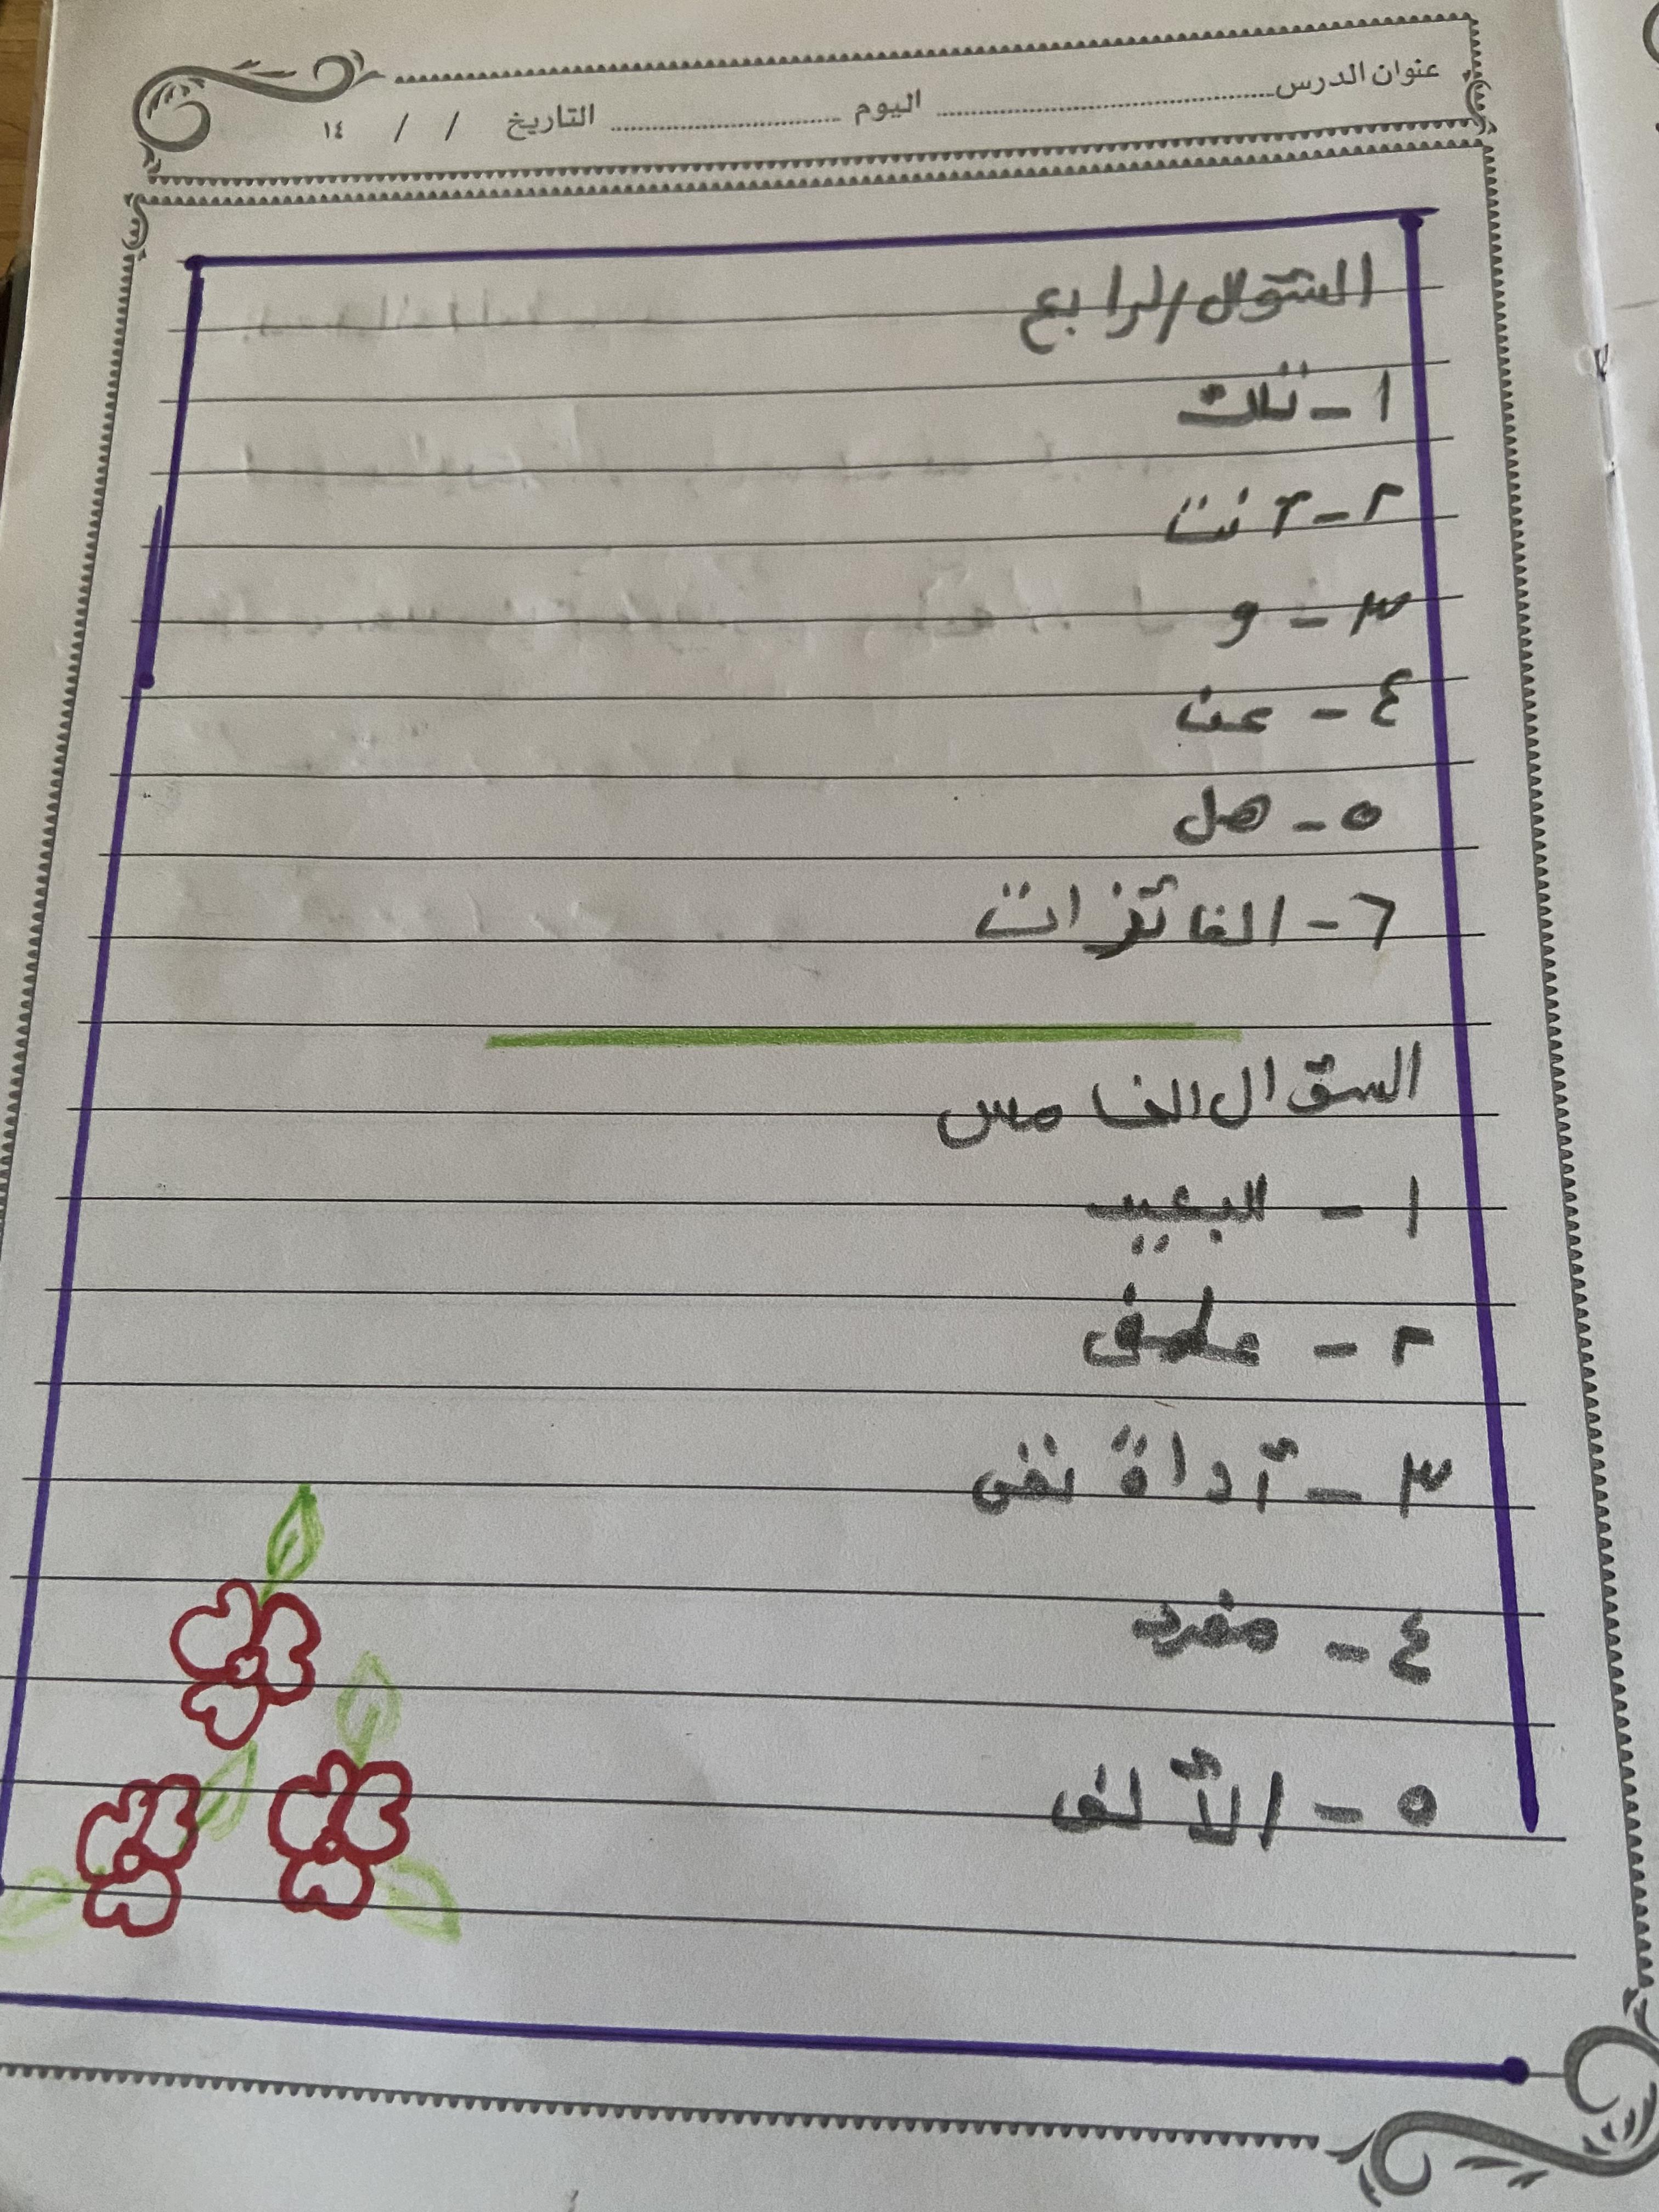 عنوان الدرس اليوم التاريخ / / ١٤
السؤال الرابع
١ - تلك
٢ - أنت
٣ - و
٤ - عن
٥ - هل
٦ - الفائزات
السؤال الخامس
١ - البعيد
٢ - عطف
٣ - أداة نفي
٤ - مفرد
٥ - الألف